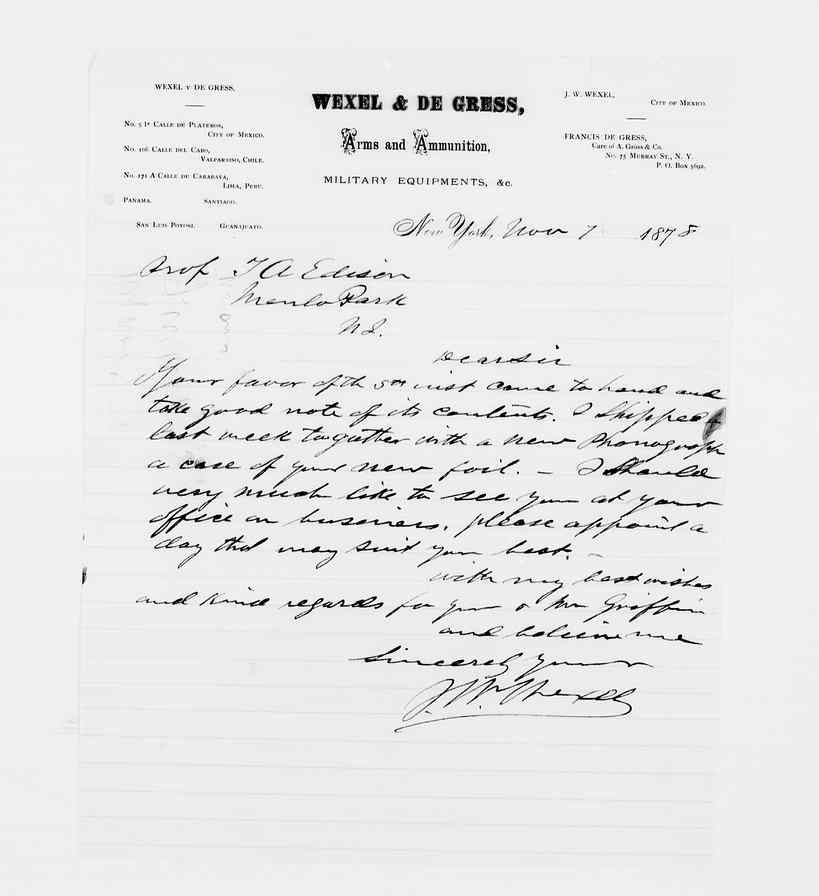 WEXEL Y DE GRESS,
No. 5 1a Calle de Plateros,
City of Mexico.
No. 106 Calle del Cabo,
Valparaiso, Chile.
No. 171 A Calle de Carabaya,
Lima, Peru.
Panama. Santiago.
San Luis Potosi. Guanajuato.
WEXEL & DE GRESS,
Arms and Ammunition,
MILITARY EQUIPMENTS, &c.
J. W. WEXEL,
City of Mexico.
FRANCIS DE GRESS,
Care of A. Gross & Co.
No. 75 Murray St., N. Y.
P. O. Box 5692.
New York, Nov 7 1878
Prof T A Edison
Menlo Park
N J.
Dear Sir
Your favor of th 5th inst came to hand and
take good note of its contents. I shipped
last week togather with a new Phonograph
a case of your new foil. – I should
very much like to see you at your
office on business, please appoint a
day that may suit you best. –
with my best wishes
and kind regards for you & Mr Griffin
and believe me
Sincerely yours
J. W. Wexel